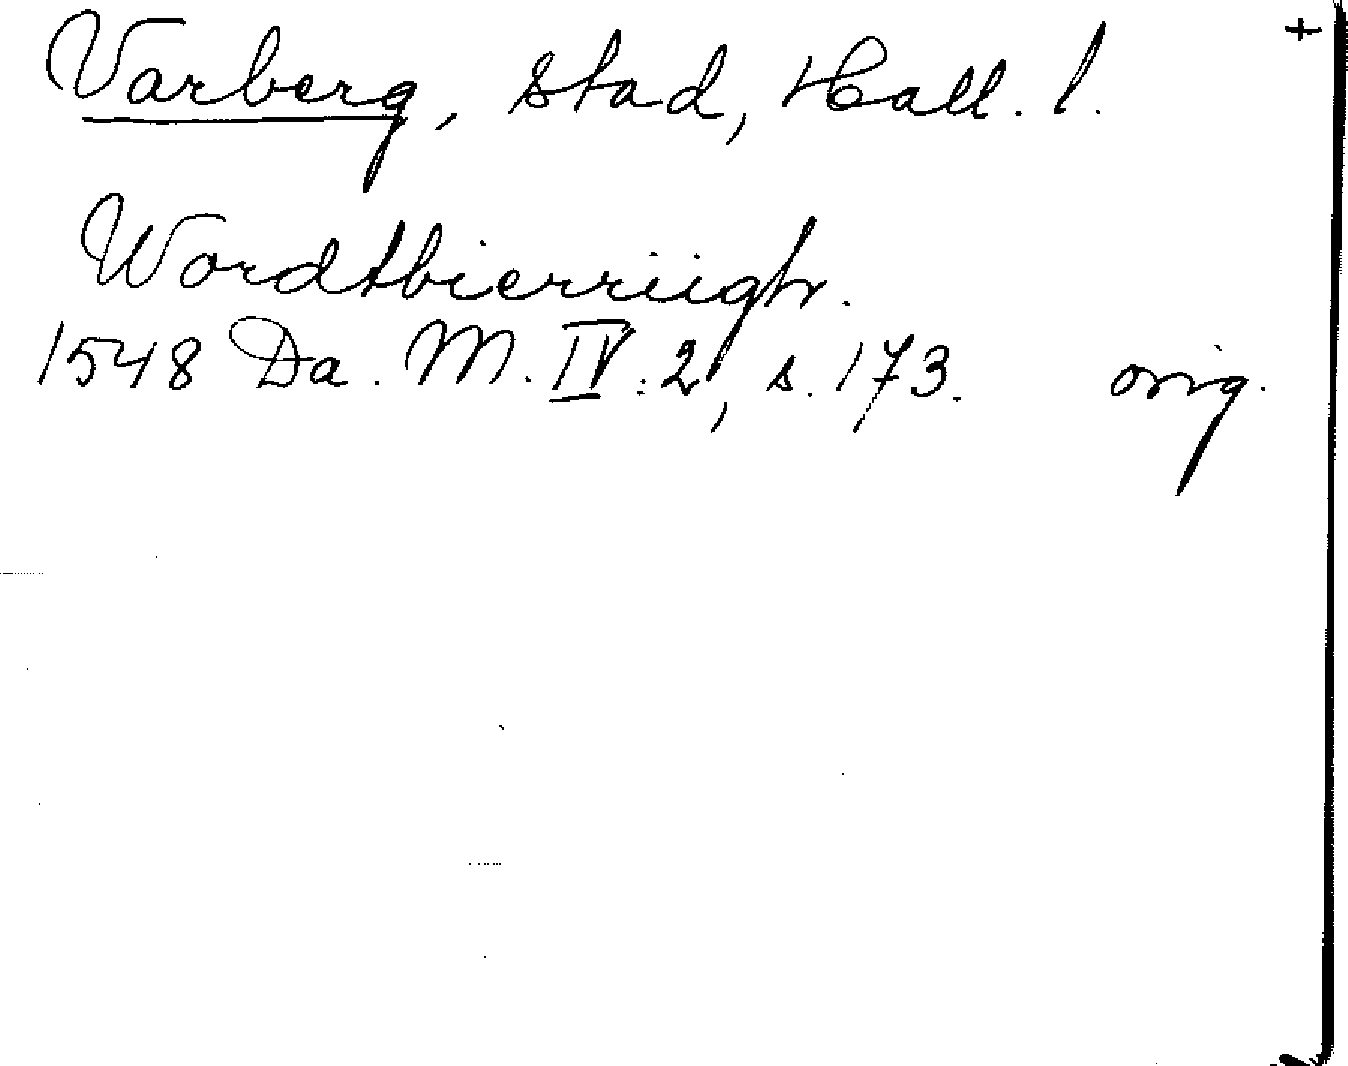 Varberg, stad, Hall. l. +
Wordtbierriigh.
1548 Da. M. IV: 2, s. 173. orig.